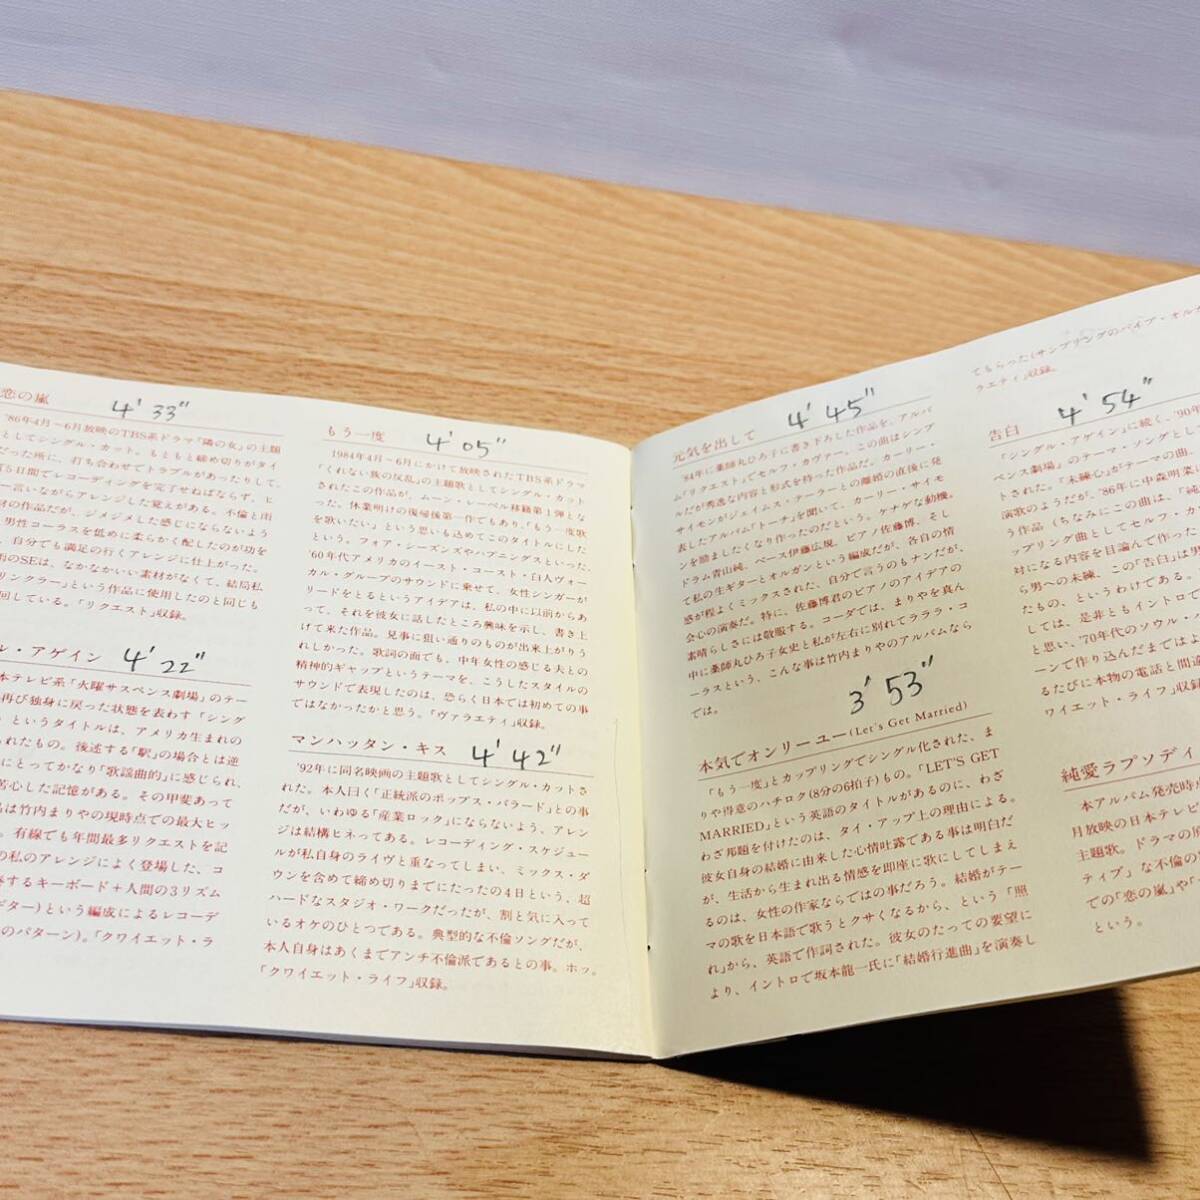 恋の嵐
4' 33"
'86年4月〜6月放映のTBS系ドラマ「隣の女」の主題
としてシングル・カット。もともと締め切りがタイ
だった所に、打ち合わせでトラブルがあったりして、
5日間でレコーディングを完了せねばならず、ヒ
言いながらアレンジした覚えがある。不倫と雨
の作品だが、ジメジメした感じにならないよう
男性コーラスを低めに柔らかく配したのが功を
、自分でも満足の行くアレンジに仕上がった。
雨のSEは、なかなかいい素材がなくて、結局私
リンクラー」という作品に使用したのと同じも
回している。「リクエスト」収録。
ル・アゲイン
4' 22"
本テレビ系「火曜サスペンス劇場」のテー
再び独身に戻った状態を表わす「シング
」というタイトルは、アメリカ生まれの
られたもの。後述する「駅」の場合とは逆
にとってかなり「歌謡曲的」に感じられ、
苦心した記憶がある。その甲斐あって
は竹内まりやの現時点での最大ヒッ
。有線でも年間最多リクエストを記
の私のアレンジによく登場した、コ
するキーボード+人間の3リズム
ギター)という編成によるレコーデ
のパターン)。「クワイエット・ラ
もう一度
4' 05"
1984年4月〜6月にかけて放映されたTBS系ドラマ
「くれない族の反乱」の主題歌としてシングル・カット
されたこの作品が、ムーン・レーベル移籍第1弾とな
った。休業明けの復帰後第一作でもあり、「もう一度歌
を歌いたい」という思いも込めてこのタイトルにした
という。フォア・シーズンズやハプニングスといった、
'60年代アメリカのイースト・コースト・白人ヴォー
カル・グループのサウンドに乗せて、女性シンガーが
リードをとるというアイデアは、私の中に以前からあ
って、それを彼女に話したところ興味を示し、書き上
げて来た作品。見事に狙い通りのものが出来上がりう
れしかった。歌詞の面でも、中年女性の感じる夫との
精神的ギャップというテーマを、こうしたスタイルの
サウンドで表現したのは、恐らく日本では初めての事
ではなかったかと思う。「ヴァラエティ」収録。
マンハッタン・キス
4' 42"
'92年に同名映画の主題歌としてシングル・カットさ
れた。本人曰く「正統派のポップス・バラード」との事
だが、いわゆる「産業ロック」にならないよう、アレン
ジは結構ヒネってある。レコーディング・スケジュー
ルが私自身のライヴと重なってしまい、ミックス・ダ
ウンを含めて締め切りまでにたったの4日という、超
ハードなスタジオ・ワークだったが、割と気に入って
いるオケのひとつである。典型的な不倫ソングだが、
本人自身はあくまでアンチ不倫派であるとの事。ホッ。
「クワイエット・ライフ」収録。
元気を出して
4' 45"
'84年に薬師丸ひろ子に書き下ろした作品を、アルバ
ム「リクエスト」でセルフ・カヴァー。この曲はシンプ
ルだが秀逸な内容と形式を持った作品だ。カーリー・
サイモンがジェイムス・テーラーとの離婚の直後に発
表したアルバム「トーチ」を聞いて、カーリー・サイモ
ンを励ましたくなり作ったのだという。ケナゲな動機。
ドラム青山純、ベース伊藤広規、ピアノ佐藤博、そし
て私の生ギターとオルガンという編成だが、各自の情
感が程よくミックスされた、自分で言うのもナンだが、
会心の演奏だ。特に、佐藤博君のピアノのアイデアの
素晴らしさには敬服する。コーダでは、まりやを真ん
中に薬師丸ひろ子女史と私が左右に別れてラララ・コ
ーラスという、こんな事は竹内まりやのアルバムなら
では。
3' 53"
本気でオンリーユー(Let's Get Married)
「もう一度」とカップリングでシングル化された、ま
りや得意のハチロク(8分の6拍子)もの。「LET'S GET
MARRIED」という英語のタイトルがあるのに、わざ
わざ邦題を付けたのは、タイ・アップ上の理由による。
彼女自身の結婚に由来した心情吐露である事は明白だ
が、生活から生まれ出る情感を即座に歌にしてしまえ
るのは、女性の作家ならではの事だろう。結婚がテー
マの歌を日本語で歌うとクサくなるから、という「照
れ」から、英語で作詞された。彼女のたっての要望に
より、イントロで坂本龍一氏に「結婚行進曲」を演奏し
てもらった(サンプリングのパイプ・オルガ
ラエティ」収録。
告白
4' 54"
「シングル・アゲイン」に続く、'90年
ペンス劇場」のテーマ・ソングとし
トされた。「未練心」がテーマの曲、
演歌のようだが、'86年に中森明菜に
う作品(ちなみにこの曲は、「純
ップリング曲としてセルフ・カ
対になる内容を目論んで作った
ら男への未練、この「告白」は男
たもの、というわけである。
しては、是非ともイントロで
と思い、'70年代のソウル・
ーンで作り込んだまではよ
るたびに本物の電話と間違
ワイエット・ライフ」収録
純愛ラプソディ
本アルバム発売時点
月放映の日本テレビ
主題歌。ドラマの原
ティブ」な不倫の
での「恋の嵐」や「
という。